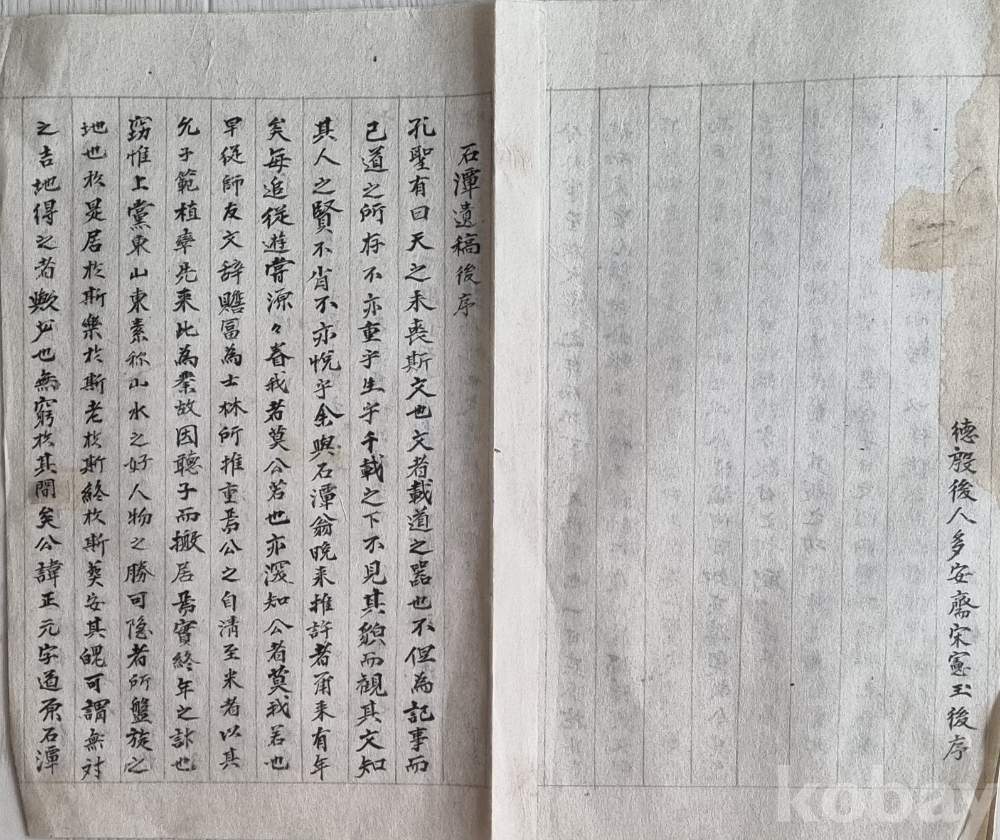 德殷後人多安齋宋憲玉後序
石潭遺稿後序
孔聖有曰天之未喪斯文也文者載道之器也不但為記事而
已道之所存不亦重乎生乎千載之下不見其貌而觀其文知
其人之賢不肖不亦悅乎余與石潭翁晩来推許者甭来有年
矣每追從遊嘗源々眷我者莫公若也亦深知公者莫我若也
早從師友文辞贍富為士林所推重焉公之自清至米者以其
允子範植率先来此為業故因聽子而搬居焉實終年之計也
窃惟上黨東山東素称山水之好人物之勝可隐者所盤旋之
地也於是居於斯樂於斯老於斯終於斯葬安其魄可謂無対
之吉地得之者歟少也無窮於其間矣公諱正元字道原石潭
kobay